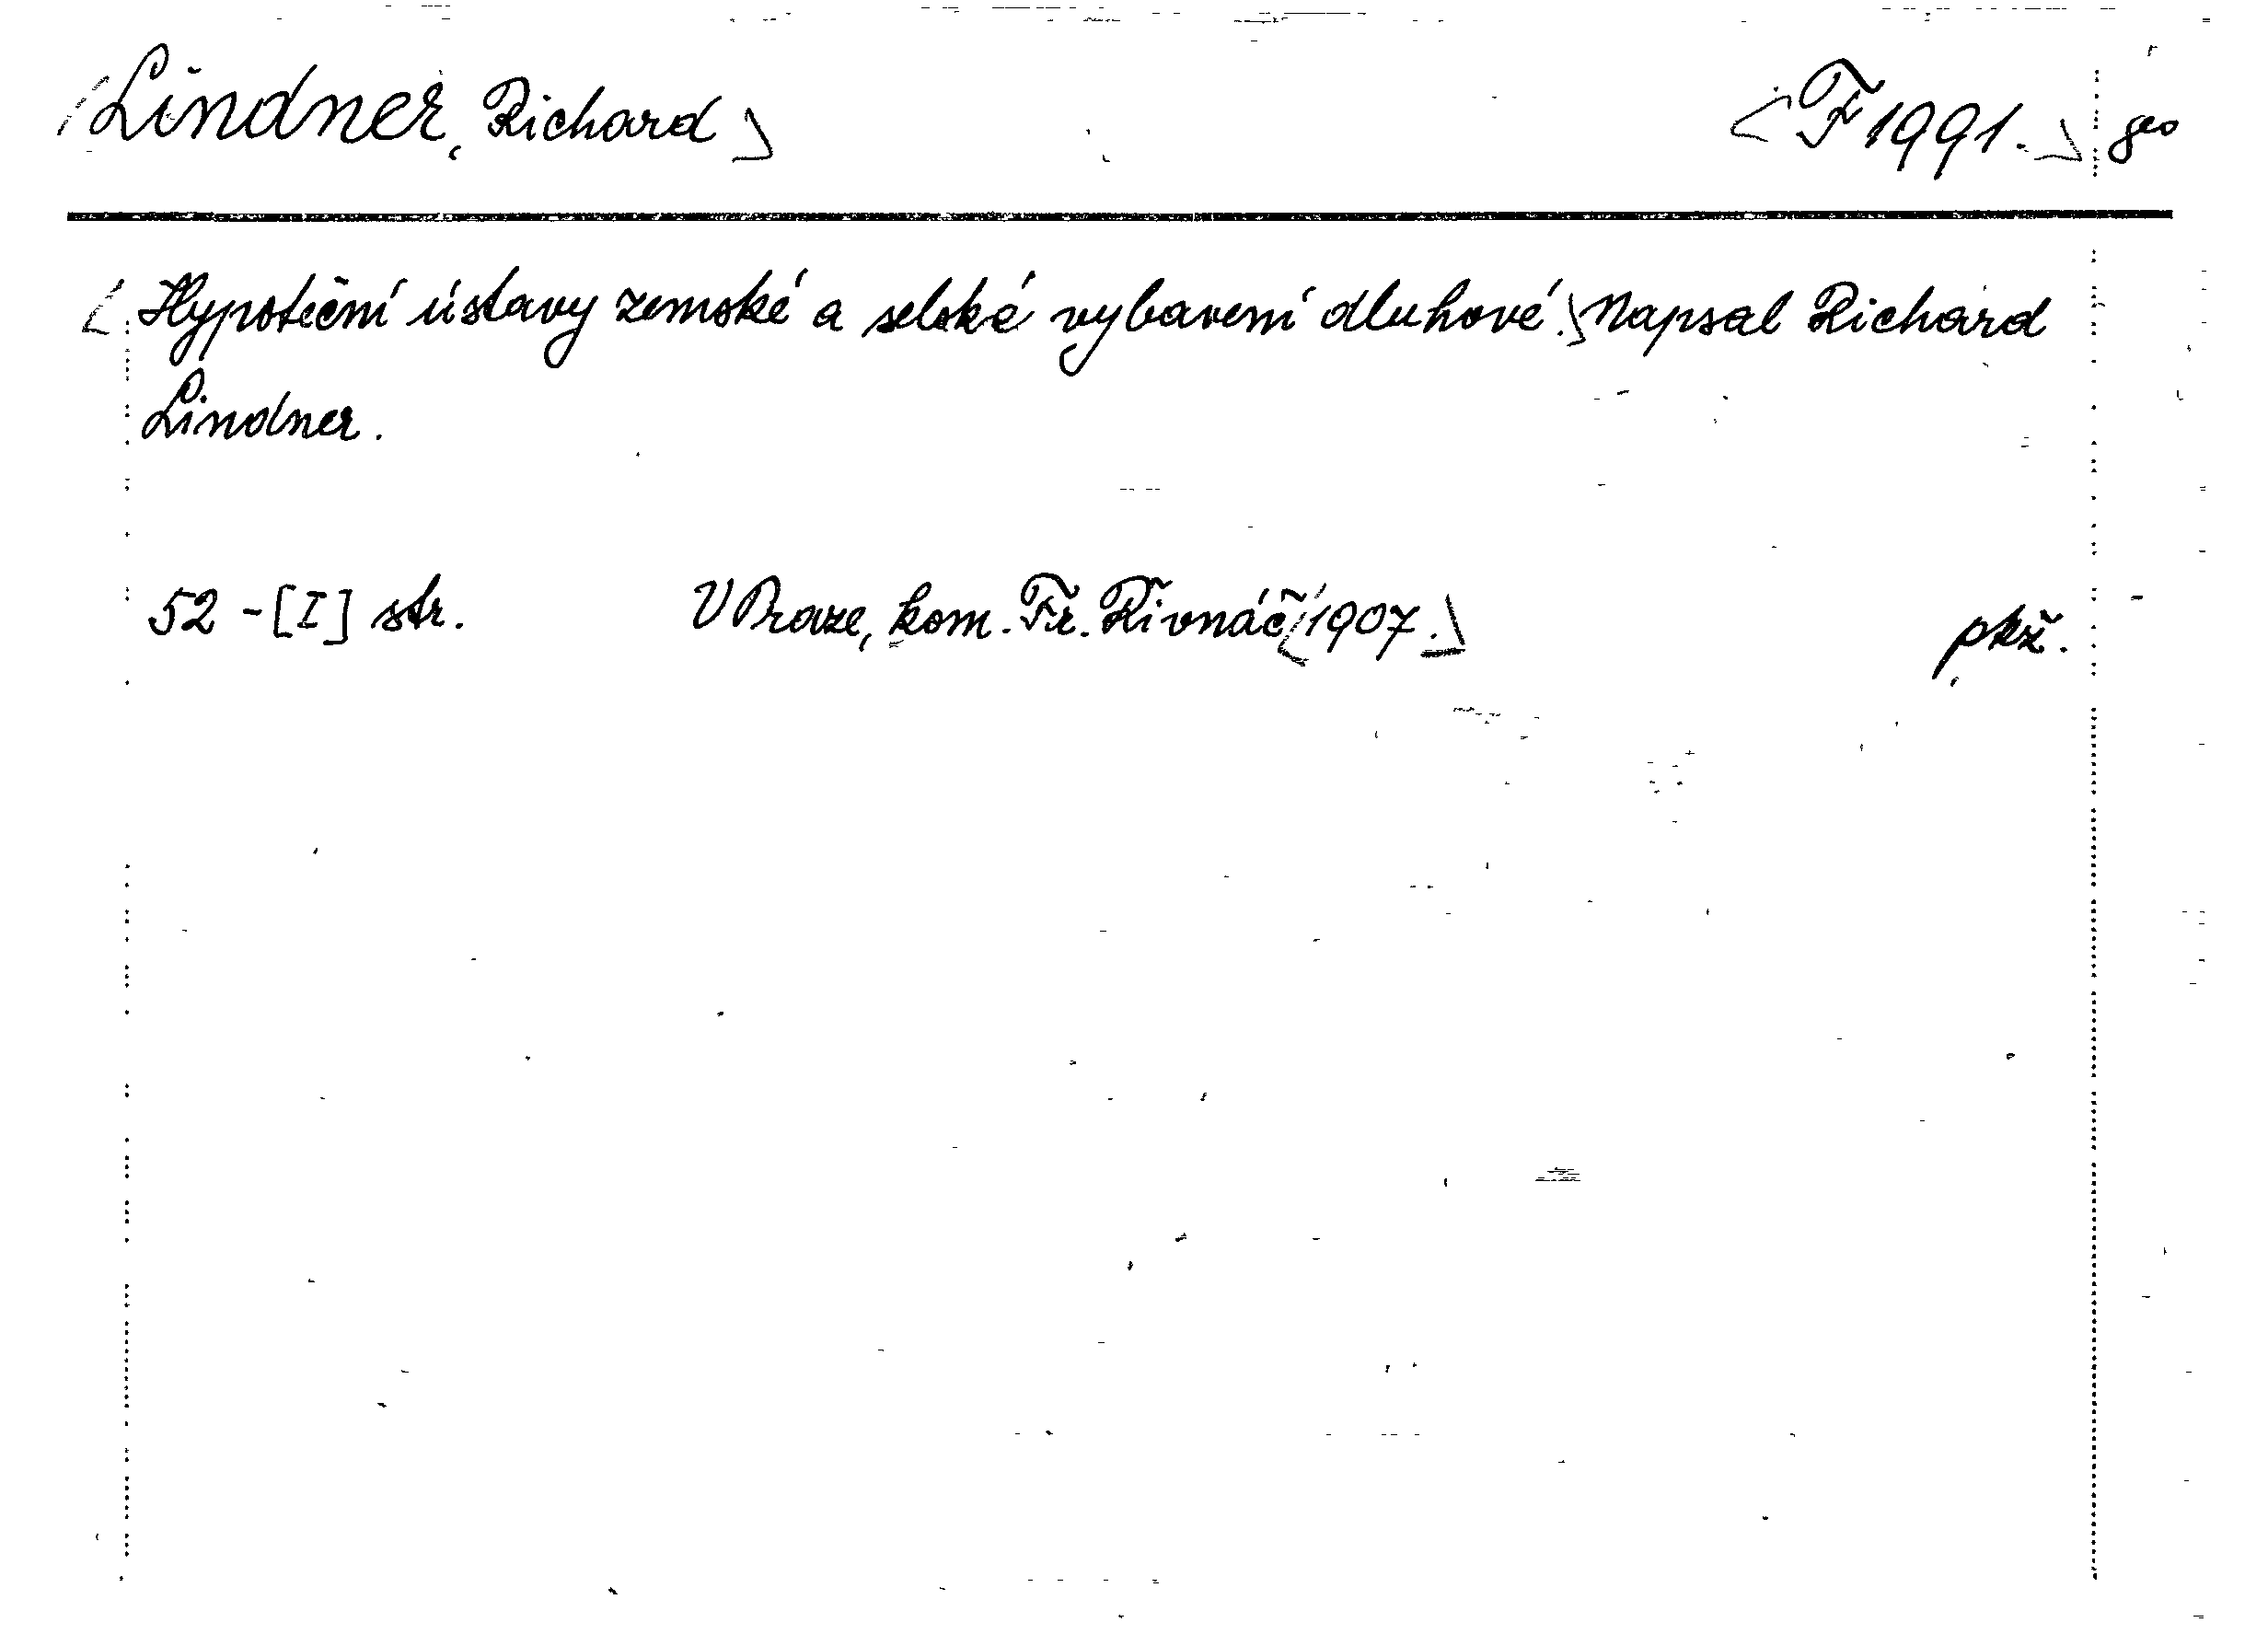 Lindner, Richard F 1991. geo
Hypoteční ústavy zemské a selské vybavení dluhové. Napsal Richard
Lindner.
52 - [I] str. V Praze, kom. Fr. Řivnáč 1907. pkž.